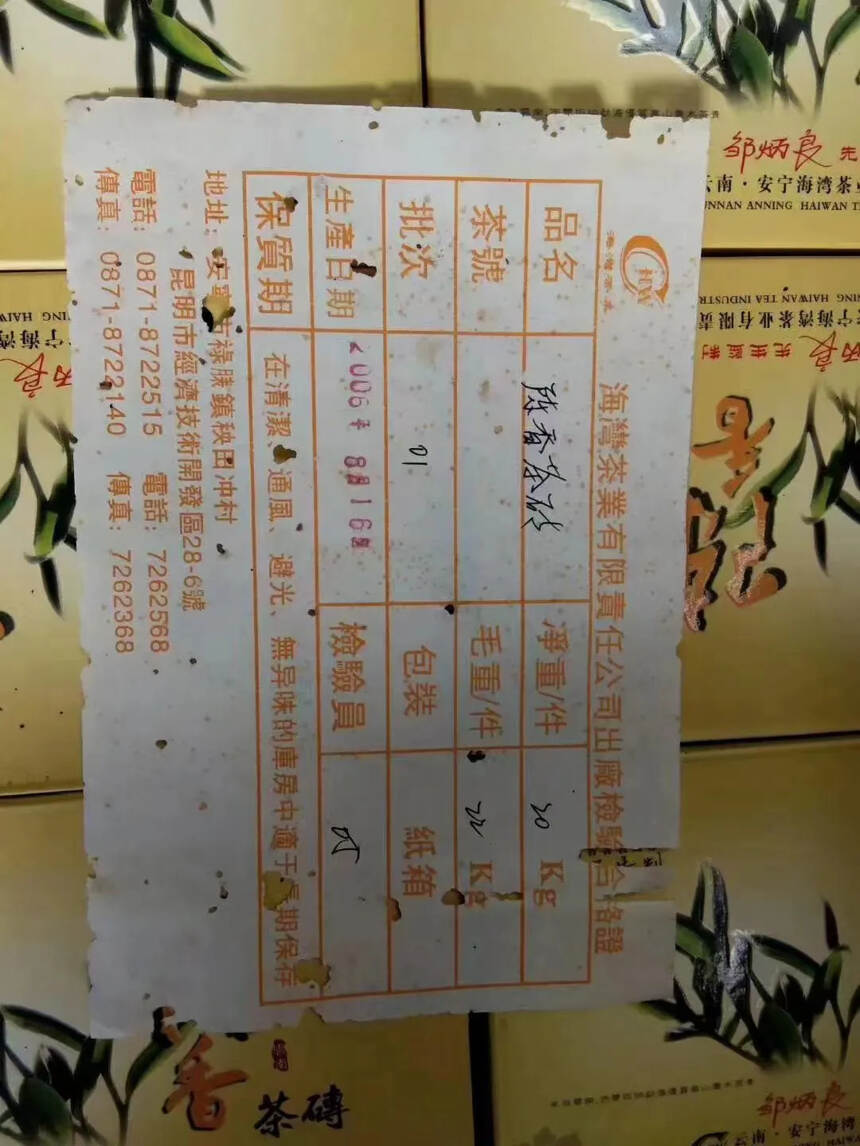 海灣茶業有限責任公司出廠檢驗合格證
品名 陈香茶砖 凈重/件 20 Kg
茶號 毛重/件 22 Kg
批次 01 包裝 紙箱
生產日期 2006年 8月16日 檢驗員
保質期 在清潔、通風、避光、無异味的庫房中適于長期保存
地址：安寧市祿脿鎮秧田冲村
昆明市經濟技術開發區28-6號
電話：0871-8722515 電話：7262568
傳真：0871-8722140 傳真：7262368
邹炳良 先
云南·安宁海湾茶业
YUNNAN ANNING HAIWAN T
先生监制
宁海湾茶业有限责
NING HAIWAN TEA INDUSTR
陈香
香
茶磚
邹炳良
云南·安宁海湾